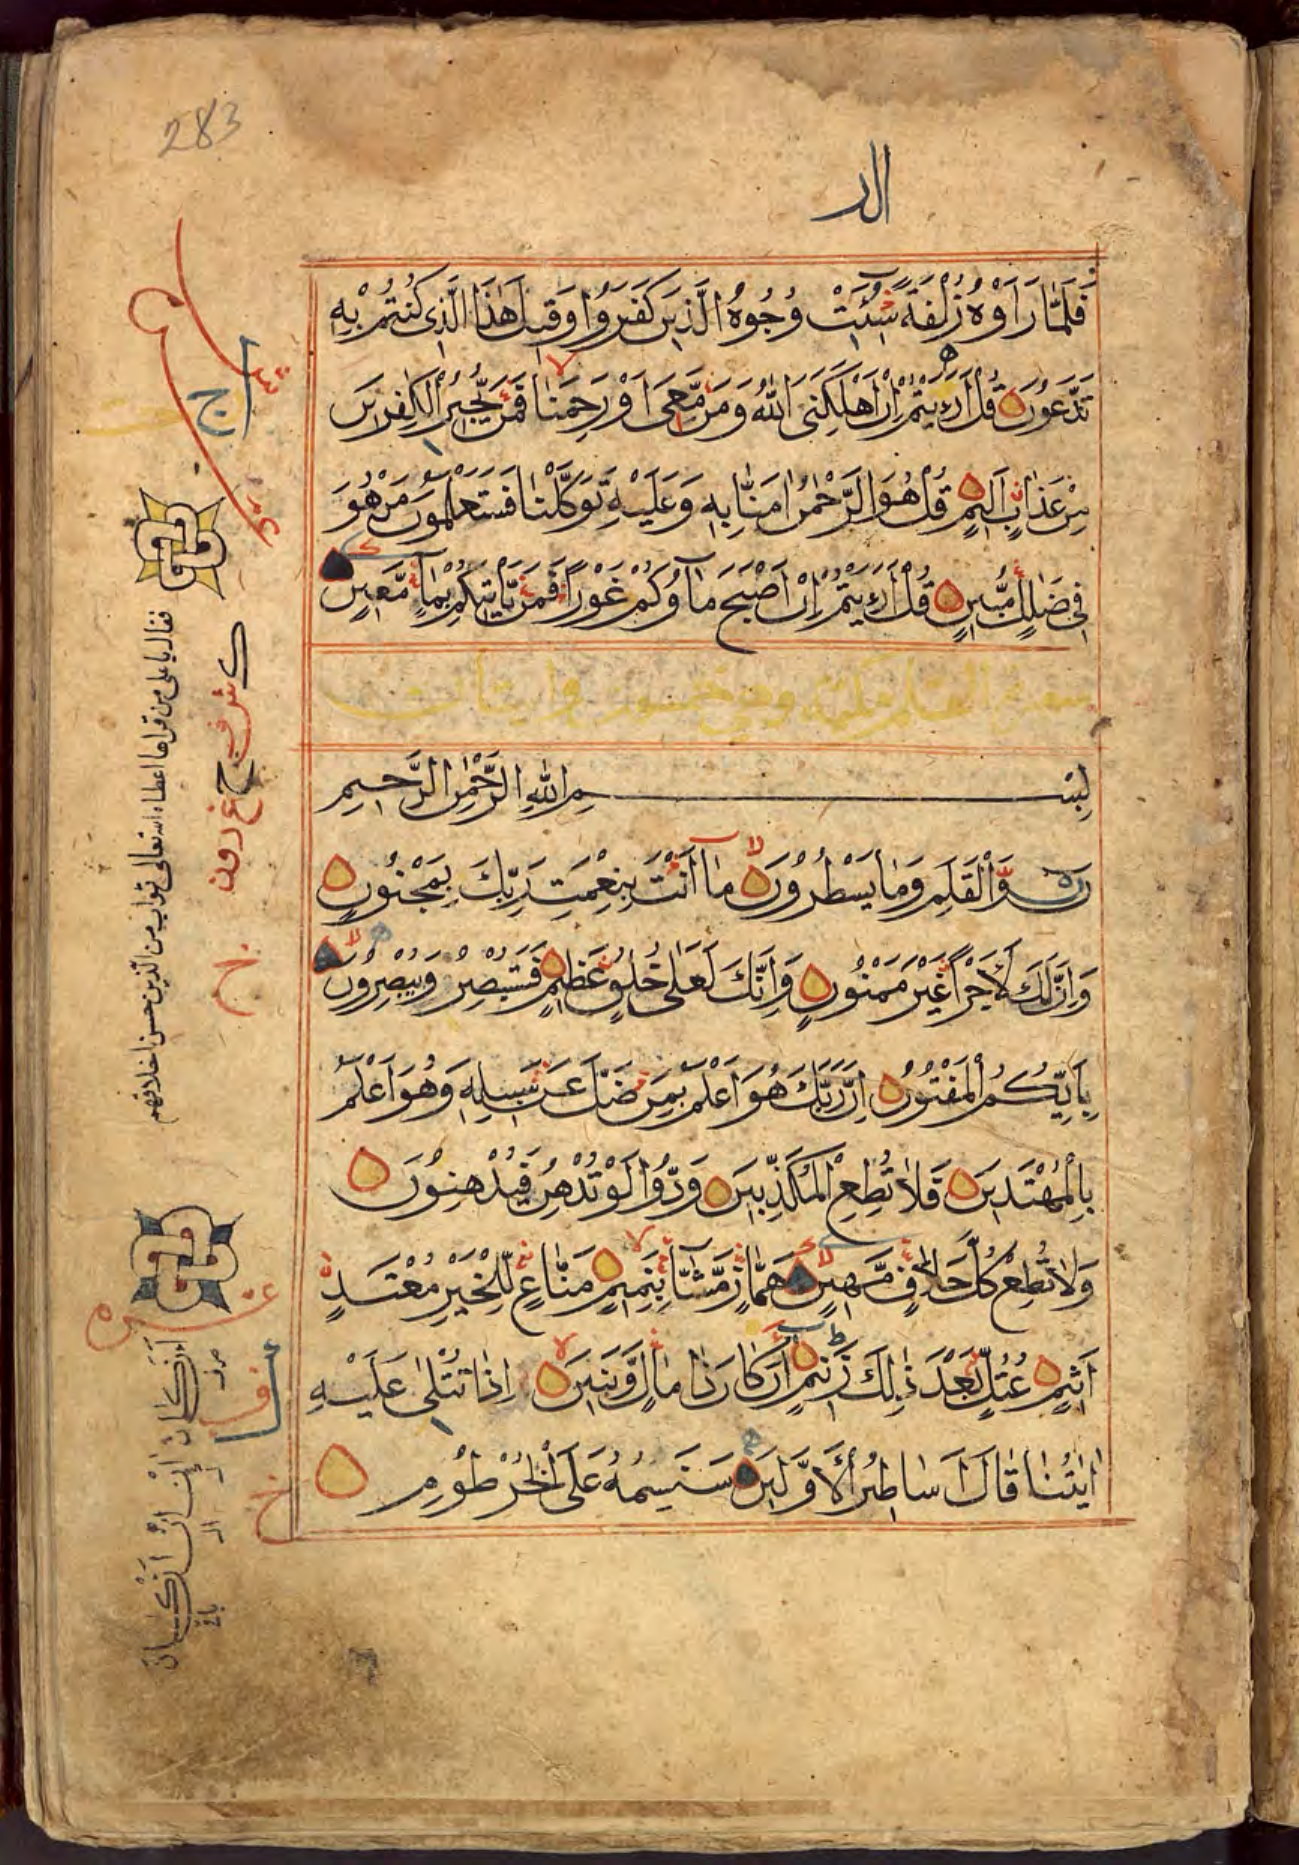 283
الد
فَلَمَّا رَاَوْهُ زُلْفَةً سِيْٓئَتْ وُجُوْهُ الَّذِيْنَ كَفَرُوْا وَقِيْلَ هٰذَا الَّذِيْ كُنْتُمْ بِهٖ
تَدَّعُوْنَ قُلْ اَرَءَيْتُمْ اِنْ اَهْلَكَنِيَ اللّٰهُ وَمَنْ مَّعِيَ اَوْ رَحِمَنَا فَمَنْ يُّجِيْرُ الْكٰفِرِيْنَ
مِنْ عَذَابٍ اَلِيْمٍ قُلْ هُوَ الرَّحْمٰنُ اٰمَنَّا بِهٖ وَعَلَيْهِ تَوَكَّلْنَا فَسَتَعْلَمُوْنَ مَنْ هُوَ
فِيْ ضَلٰلٍ مُّبِيْنٍ قُلْ اَرَءَيْتُمْ اِنْ اَصْبَحَ مَآؤُكُمْ غَوْرًا فَمَنْ يَّاْتِيْكُمْ بِمَآءٍ مَّعِيْنٍ
سورة القلم مكية وهي خمسون واثنتان
بِسْمِ اللّٰهِ الرَّحْمٰنِ الرَّحِيْمِ
نٓ وَالْقَلَمِ وَمَا يَسْطُرُوْنَ مَآ اَنْتَ بِنِعْمَتِ رَبِّكَ بِمَجْنُوْنٍ
وَاِنَّ لَكَ لَاَجْرًا غَيْرَ مَمْنُوْنٍ وَاِنَّكَ لَعَلٰى خُلُقٍ عَظِيْمٍ فَسَتُبْصِرُ وَيُبْصِرُوْنَ
بِاَيِّكُمُ الْمَفْتُوْنُ اِنَّ رَبَّكَ هُوَ اَعْلَمُ بِمَنْ ضَلَّ عَنْ سَبِيْلِهٖ وَهُوَ اَعْلَمُ
بِالْمُهْتَدِيْنَ فَلَا تُطِعِ الْمُكَذِّبِيْنَ وَدُّوْا لَوْ تُدْهِنُ فَيُدْهِنُوْنَ
وَلَا تُطِعْ كُلَّ حَلَّافٍ مَّهِيْنٍ هَمَّازٍ مَّشَّآءٍ بِنَمِيْمٍ مَنَّاعٍ لِّلْخَيْرِ مُعْتَدٍ
اَثِيْمٍ عُتُلٍّ بَعْدَ ذٰلِكَ زَنِيْمٍ اَنْ كَانَ ذَا مَالٍ وَّبَنِيْنَ اِذَا تُتْلٰى عَلَيْهِ
اٰيٰتُنَا قَالَ اَسَاطِيْرُ الْاَوَّلِيْنَ سَنَسِمُهٗ عَلَى الْخُرْطُوْمِ
فقال يا علي من قراها اعطاه الله تعالى ثواب من الذين حسن اخلاقهم